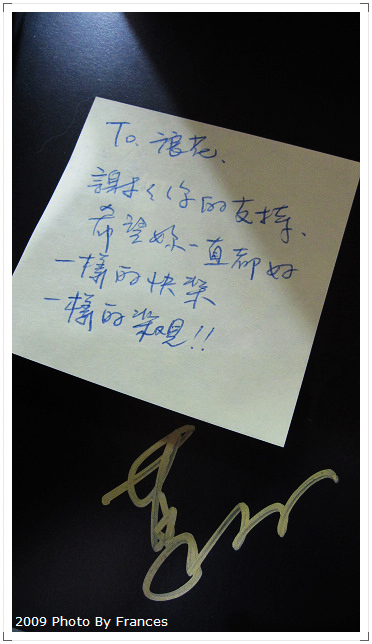 To. 浪花.
謝謝你的支持、
希望妳一直都好
一樣的快樂
一樣的樂觀!!
2009 Photo By Frances